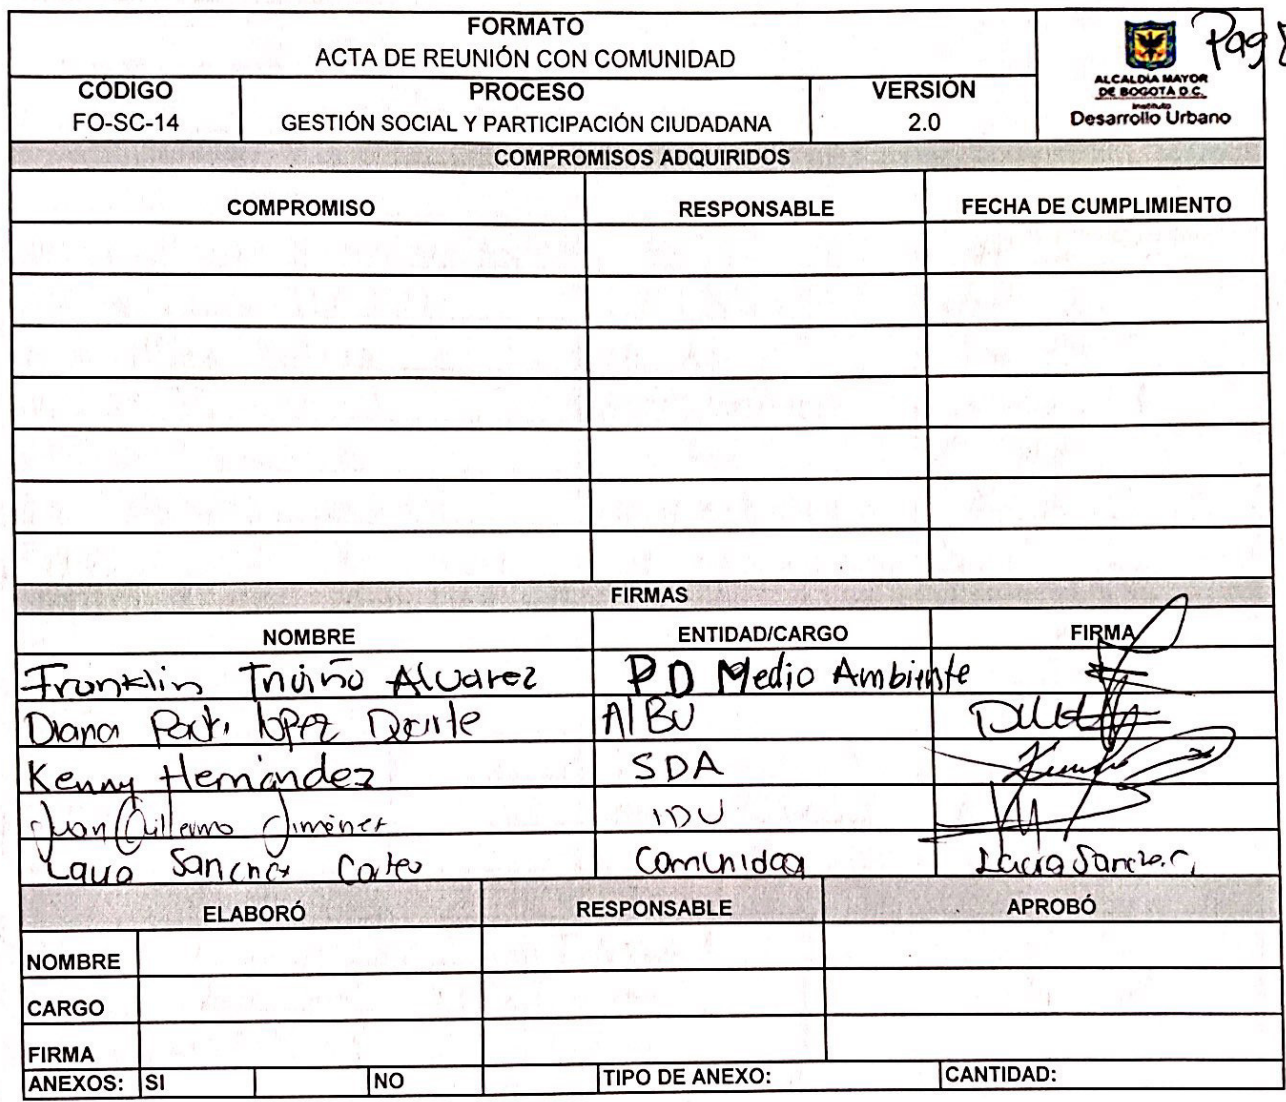 FORMATO
ACTA DE REUNIÓN CON COMUNIDAD
Pag
ALCALDIA MAYOR
DE BOGOTA D.C.
Instituto
Desarrollo Urbano
CÓDIGO PROCESO VERSIÓN
FO-SC-14 GESTIÓN SOCIAL Y PARTICIPACIÓN CIUDADANA 2.0
COMPROMISOS ADQUIRIDOS
COMPROMISO RESPONSABLE FECHA DE CUMPLIMIENTO
FIRMAS
NOMBRE ENTIDAD/CARGO FIRMA
Franklin Triviño Alvarez PD Medio Ambiente
Diana López
Kenny Hernández SDA
Juan Guillermo Jiménez IDU
Laura Sanchez Comunidad Laura Sanchez C
ELABORÓ RESPONSABLE APROBÓ
NOMBRE
CARGO
FIRMA
ANEXOS: SI NO TIPO DE ANEXO: CANTIDAD: